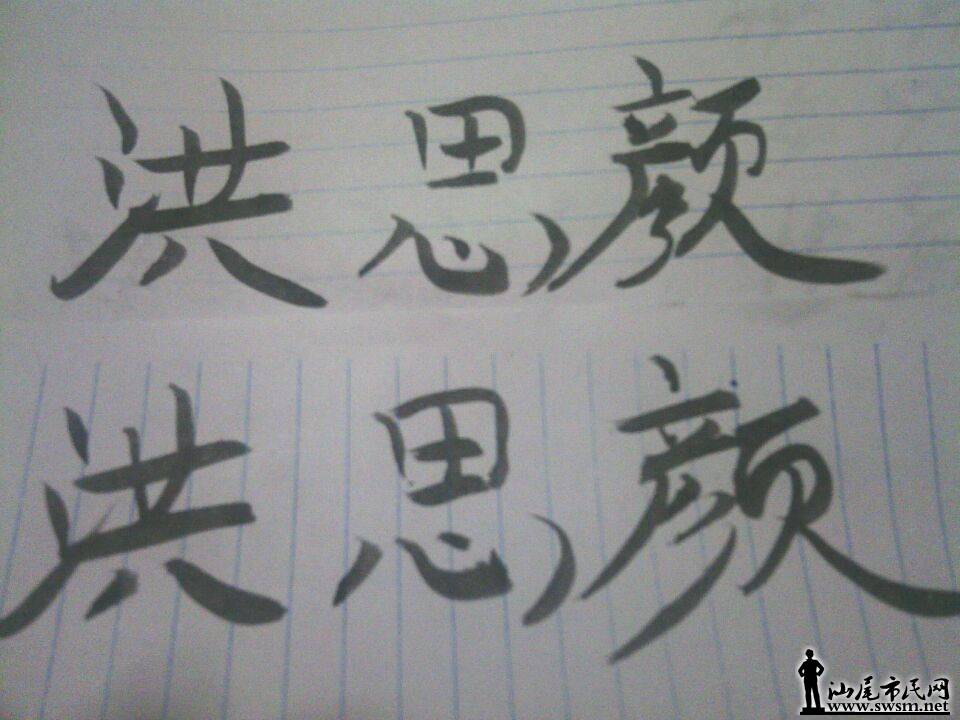 洪思颜
洪思颜
汕尾市民网
www.swsm.net